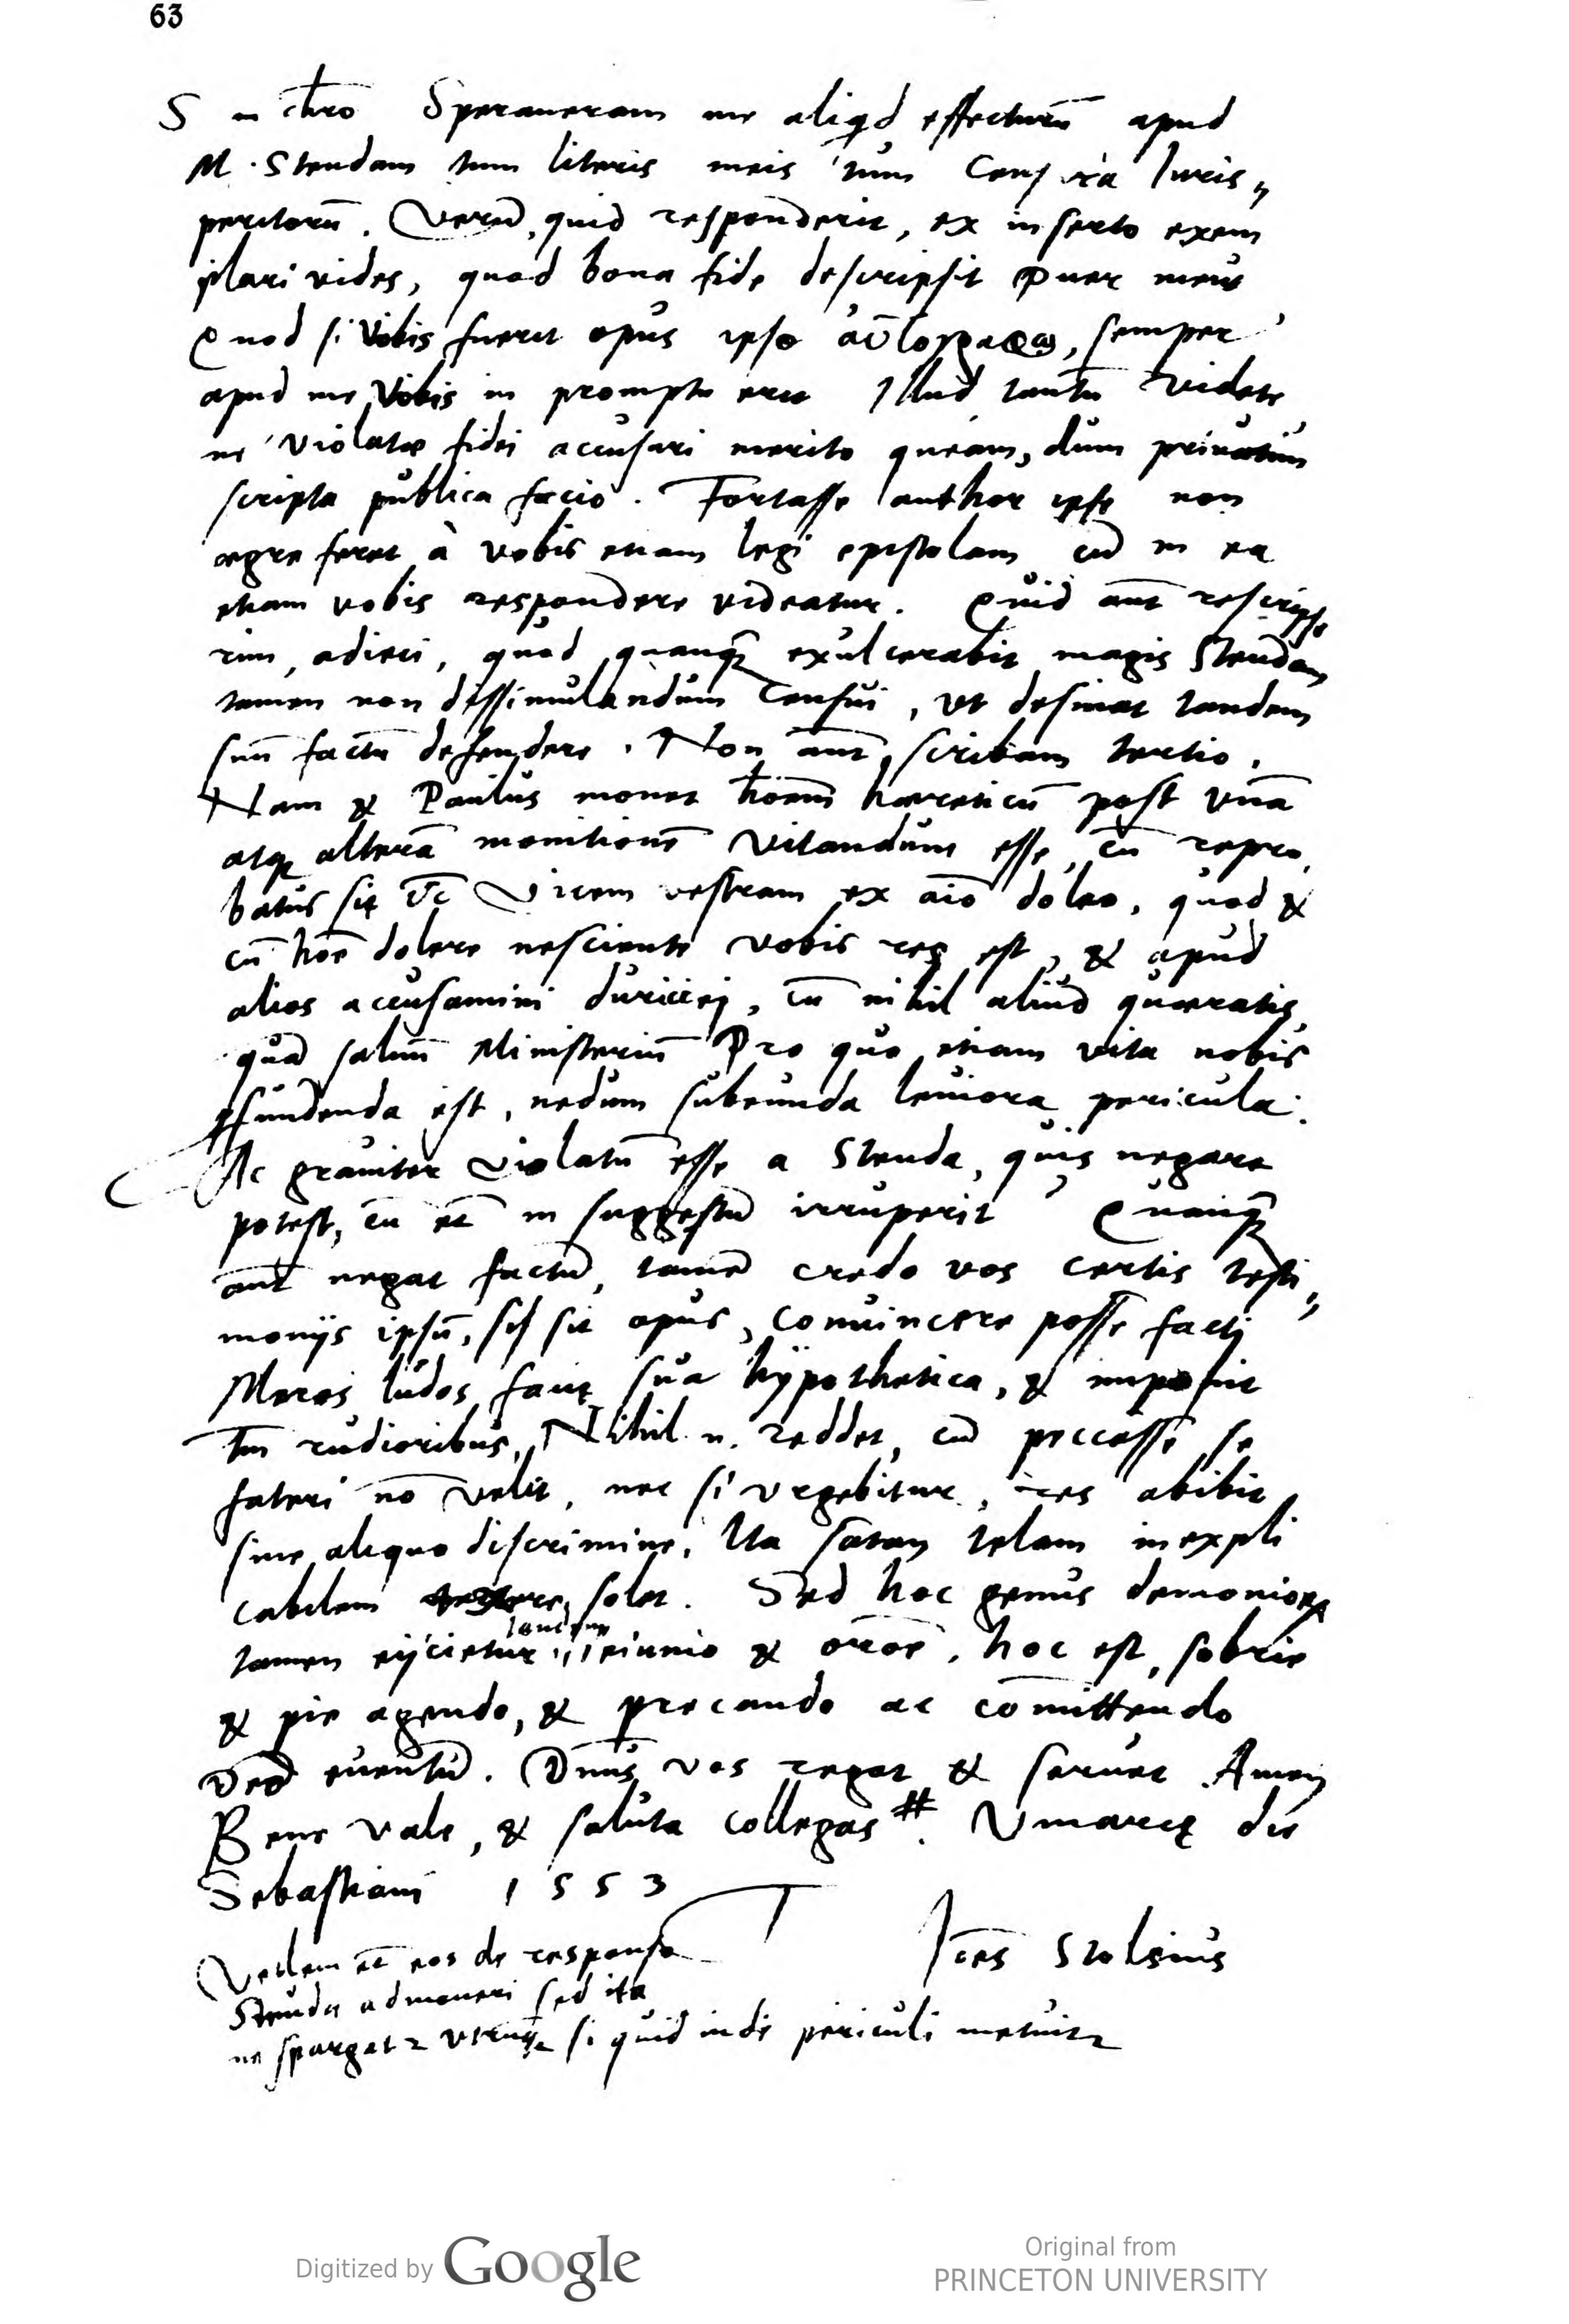 63
S in chr̄o Speraueram me aliqd effecturū apud
M. Stendam tum literis meis tum Censura Iuris„
peritorū. Verū quid responderit, ex inserto exem
plari vides, quod bona fide descripsit Puer meus
Quod si Vobis fuerit opus ipso αὐτογράφῳ, semper
apud me Vobis in promptu erit Illud tantū videte
ne violatæ fidei accusari merito queam, dum privatim
scripta publica facio. Fortasse author ipse non
ægre feret à vobis etiam legi epistolam cū in ea
etiam vobis respondere videatur. Quid aūt rescripse
rim, adieci, quod quanq̃ exulcerabit magis Stendam
tamen non dissimulandum Censui, vt desinat tandem
suū factū defendere. Non aūt scribam tertio.
Nam & Paulus monet hōiem hæreticū post vnā
atq alterā monitionē vitandum esse, cū repro
batus sit &c Vicem vestram ex aīo doleo, quod &
cū hōe dolere nesciente vobis res est, & apud
alios accusamini duriciej, cū nihil aliud quæratis
quā saluū Ministeriū Pro quo etiam vita nobis
ꝓfundenda est, nedum subeunda leuiora pericula.
Ac grauiter violatū esse a Stenda, quis negare
potest, cū et in suggestū irruperit? Quanq̃
aūt negat factū, tamē credo vos certis testi„
monijs ipsū, si sit opus, conuincere posse facti
Meros ludos facit sua hypothetica, & imponit
tm̄ rudioribus. Nihil n. reddet, cū peccasse se
fateri nō velit, nec si vrgebitur, res abibit
sine aliquo discrimine. Ita satan telam inexpli
cabilem texere solet. Sed hoc genus demoniorꝝ
tandem
tamen eijcietur ieiunio & orōe, hoc est, sobrie
& pie agendo, & precando ac cōmittendo
Deo euentū. Dn̄us vos regat & seruet Amen
Bene vale, & saluta collegas #. Vinarię die
Sebastiani 1553
Ioēs Stolsius
Vellem et eos de responso
Stenda admoneri sed ita
ne spargat utrinq si quid inde periculi metuitꝛ
Digitized by Google
Original from
PRINCETON UNIVERSITY